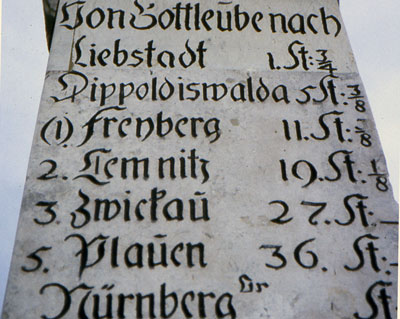 Von Gottleube nach
Liebstadt 1. St: 3/4
Dippoldiswalda 5 St: 3/8
(1.) Freyberg 11. St: -/8
2. Cemnitz 19. St: 1/8
3. Zwickau 27. St: -
5. Plauen 36. St: -
Nürnberg Gr St: